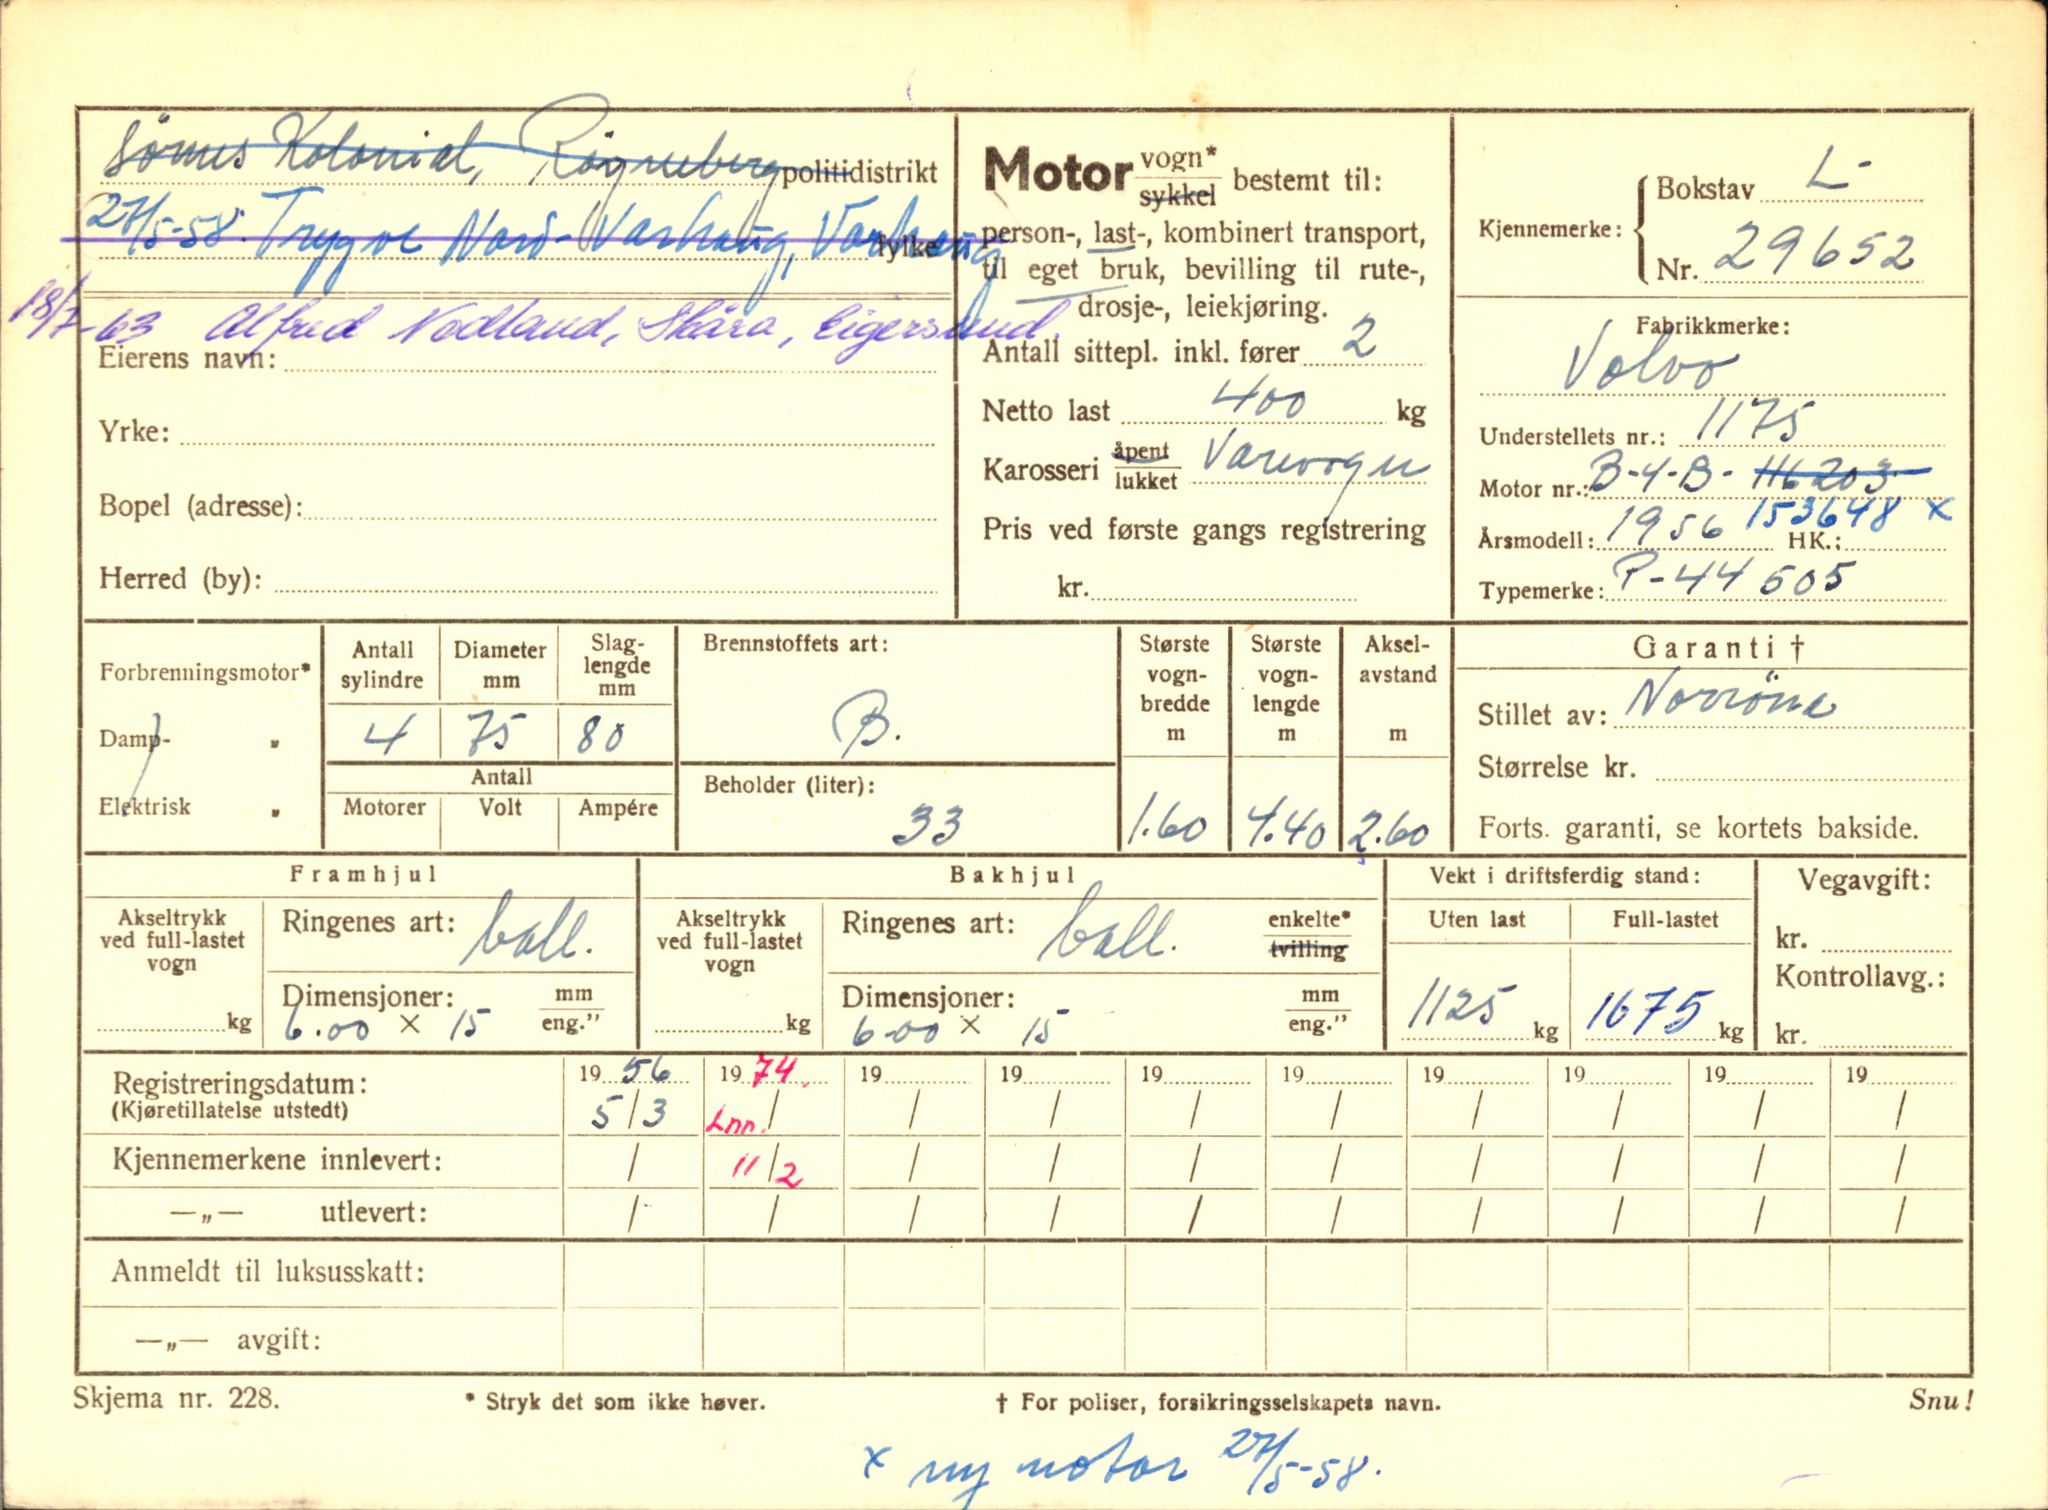 Sömes Kolonial, Røyneberg politidistrikt
27/5-58. Trygve Nord-Varhaug, Varhaug fylke
18/7-63 Alfred Nodland, Skåra, Eigersund.
Eierens navn:
Yrke:
Bopel (adresse):
Herred (by):
Motor vogn* sykkel bestemt til:
person-, last-, kombinert transport,
til eget bruk, bevilling til rute-,
drosje-, leiekjøring.
Antall sittepl. inkl. fører 2
Netto last 400 kg
Karosseri åpent lukket Varevogn
Pris ved første gangs registrering
kr.
Kjennemerke: Bokstav L-
Nr. 29652
Fabrikkmerke:
Volvo
Understellets nr.: 1175
Motor nr.: B-4-B- 116203
153648 x
Årsmodell: 1956 HK.:
Typemerke: P-44505
Forbrenningsmotor*
Damp- „
Elektrisk „
Antall sylindre
4
Diameter mm
75
Slag-lengde mm
80
Antall
Motorer Volt Ampére
Brennstoffets art:
B.
Beholder (liter):
33
Største vogn-bredde m
1.60
Største vogn-lengde m
4.40
Aksel-avstand m
2.60
Garanti †
Stillet av: Norrøna
Størrelse kr.
Forts. garanti, se kortets bakside.
Framhjul
Akseltrykk ved full-lastet vogn
kg
Ringenes art: ball.
Dimensjoner: mm eng."
6.00 × 15
Bakhjul
Akseltrykk ved full-lastet vogn
kg
Ringenes art: ball. enkelte* tvilling
Dimensjoner: mm eng."
6.00 × 15
Vekt i driftsferdig stand:
Uten last Full-lastet
1125 kg 1675 kg
Vegavgift:
kr.
Kontrollavg.:
kr.
Registreringsdatum: 19 56 19 74. 19 19 19 19 19 19 19 19
(Kjøretillatelse utstedt) 5/3 Lnn. / / / / / / / / /
Kjennemerkene innlevert: / 11/2 / / / / / / / /
—„— utlevert: / / / / / / / / / /
Anmeldt til luksusskatt:
—„— avgift:
Skjema nr. 228. * Stryk det som ikke høver. † For poliser, forsikringsselskapets navn. Snu!
x ny motor 27/5-58.